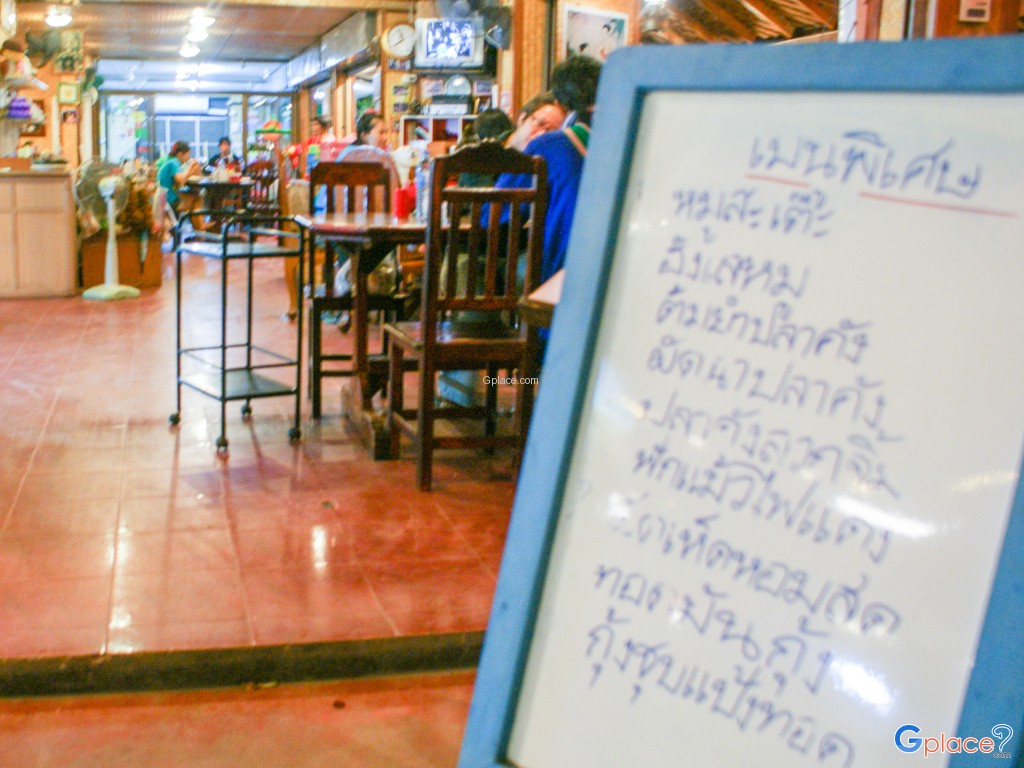 เมนูพิเศษ
หมูสะเต๊ะ
อึ้งแสหม
ต้มยำปลาคัง
ผัดฉ่าปลาคัง
ปลาคังลวกจิ้ม
ฟักแม้วไฟแดง
เห็ดหอมสด
ทอดมันกุ้ง
กุ้งชุบแป้งทอด
Gplace.com
Gplace.com